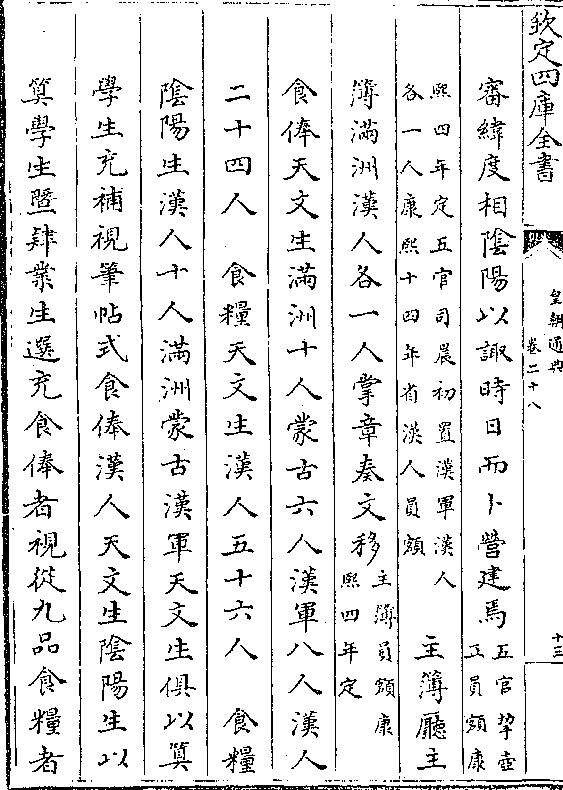 欽定四庫全書
皇朝通典
卷二十八
十三
審緯度相陰陽以諏時日而卜營建焉
五官挈壺
正員額康
熙四年定五官司晨初置漢軍漢人
各一人康熙十四年省漢人員額
主簿廳主
簿滿洲漢人各一人掌章奏文移
主簿員額康
熙四年定
食俸天文生滿洲十人蒙古六人漢軍八人漢人
二十四人 食糧天文生漢人五十六人 食糧
陰陽生漢人十人滿洲蒙古漢軍天文生俱以算
學生充補視筆帖式食俸漢人天文生陰陽生以
算學生暨肄業生選充食俸者視從九品食糧者